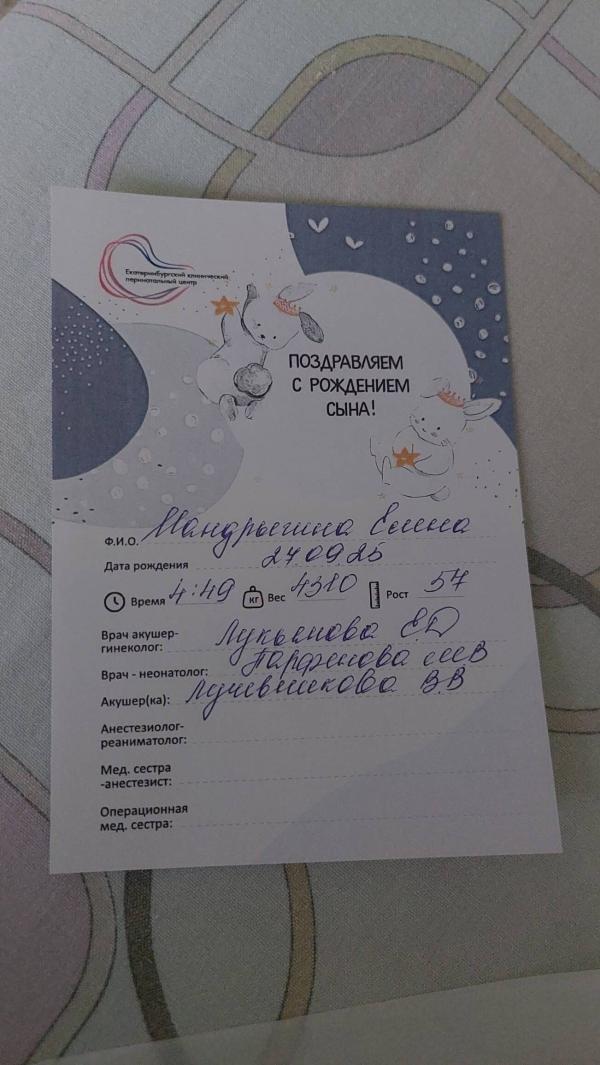 Екатеринбургский клинический
перинатальный центр
ПОЗДРАВЛЯЕМ
С РОЖДЕНИЕМ
СЫНА!
Ф.И.О. Мандрыгина Елена
Дата рождения 27.09.25
Время 4:49 кг Вес 4310 Рост 57
Врач акушер-
гинеколог: Лукьянова ЕД
Врач - неонатолог: Парфенова
Акушер(ка): Лучевникова В.В
Анестезиолог-
реаниматолог:
Мед. сестра
-анестезист:
Операционная
мед. сестра: